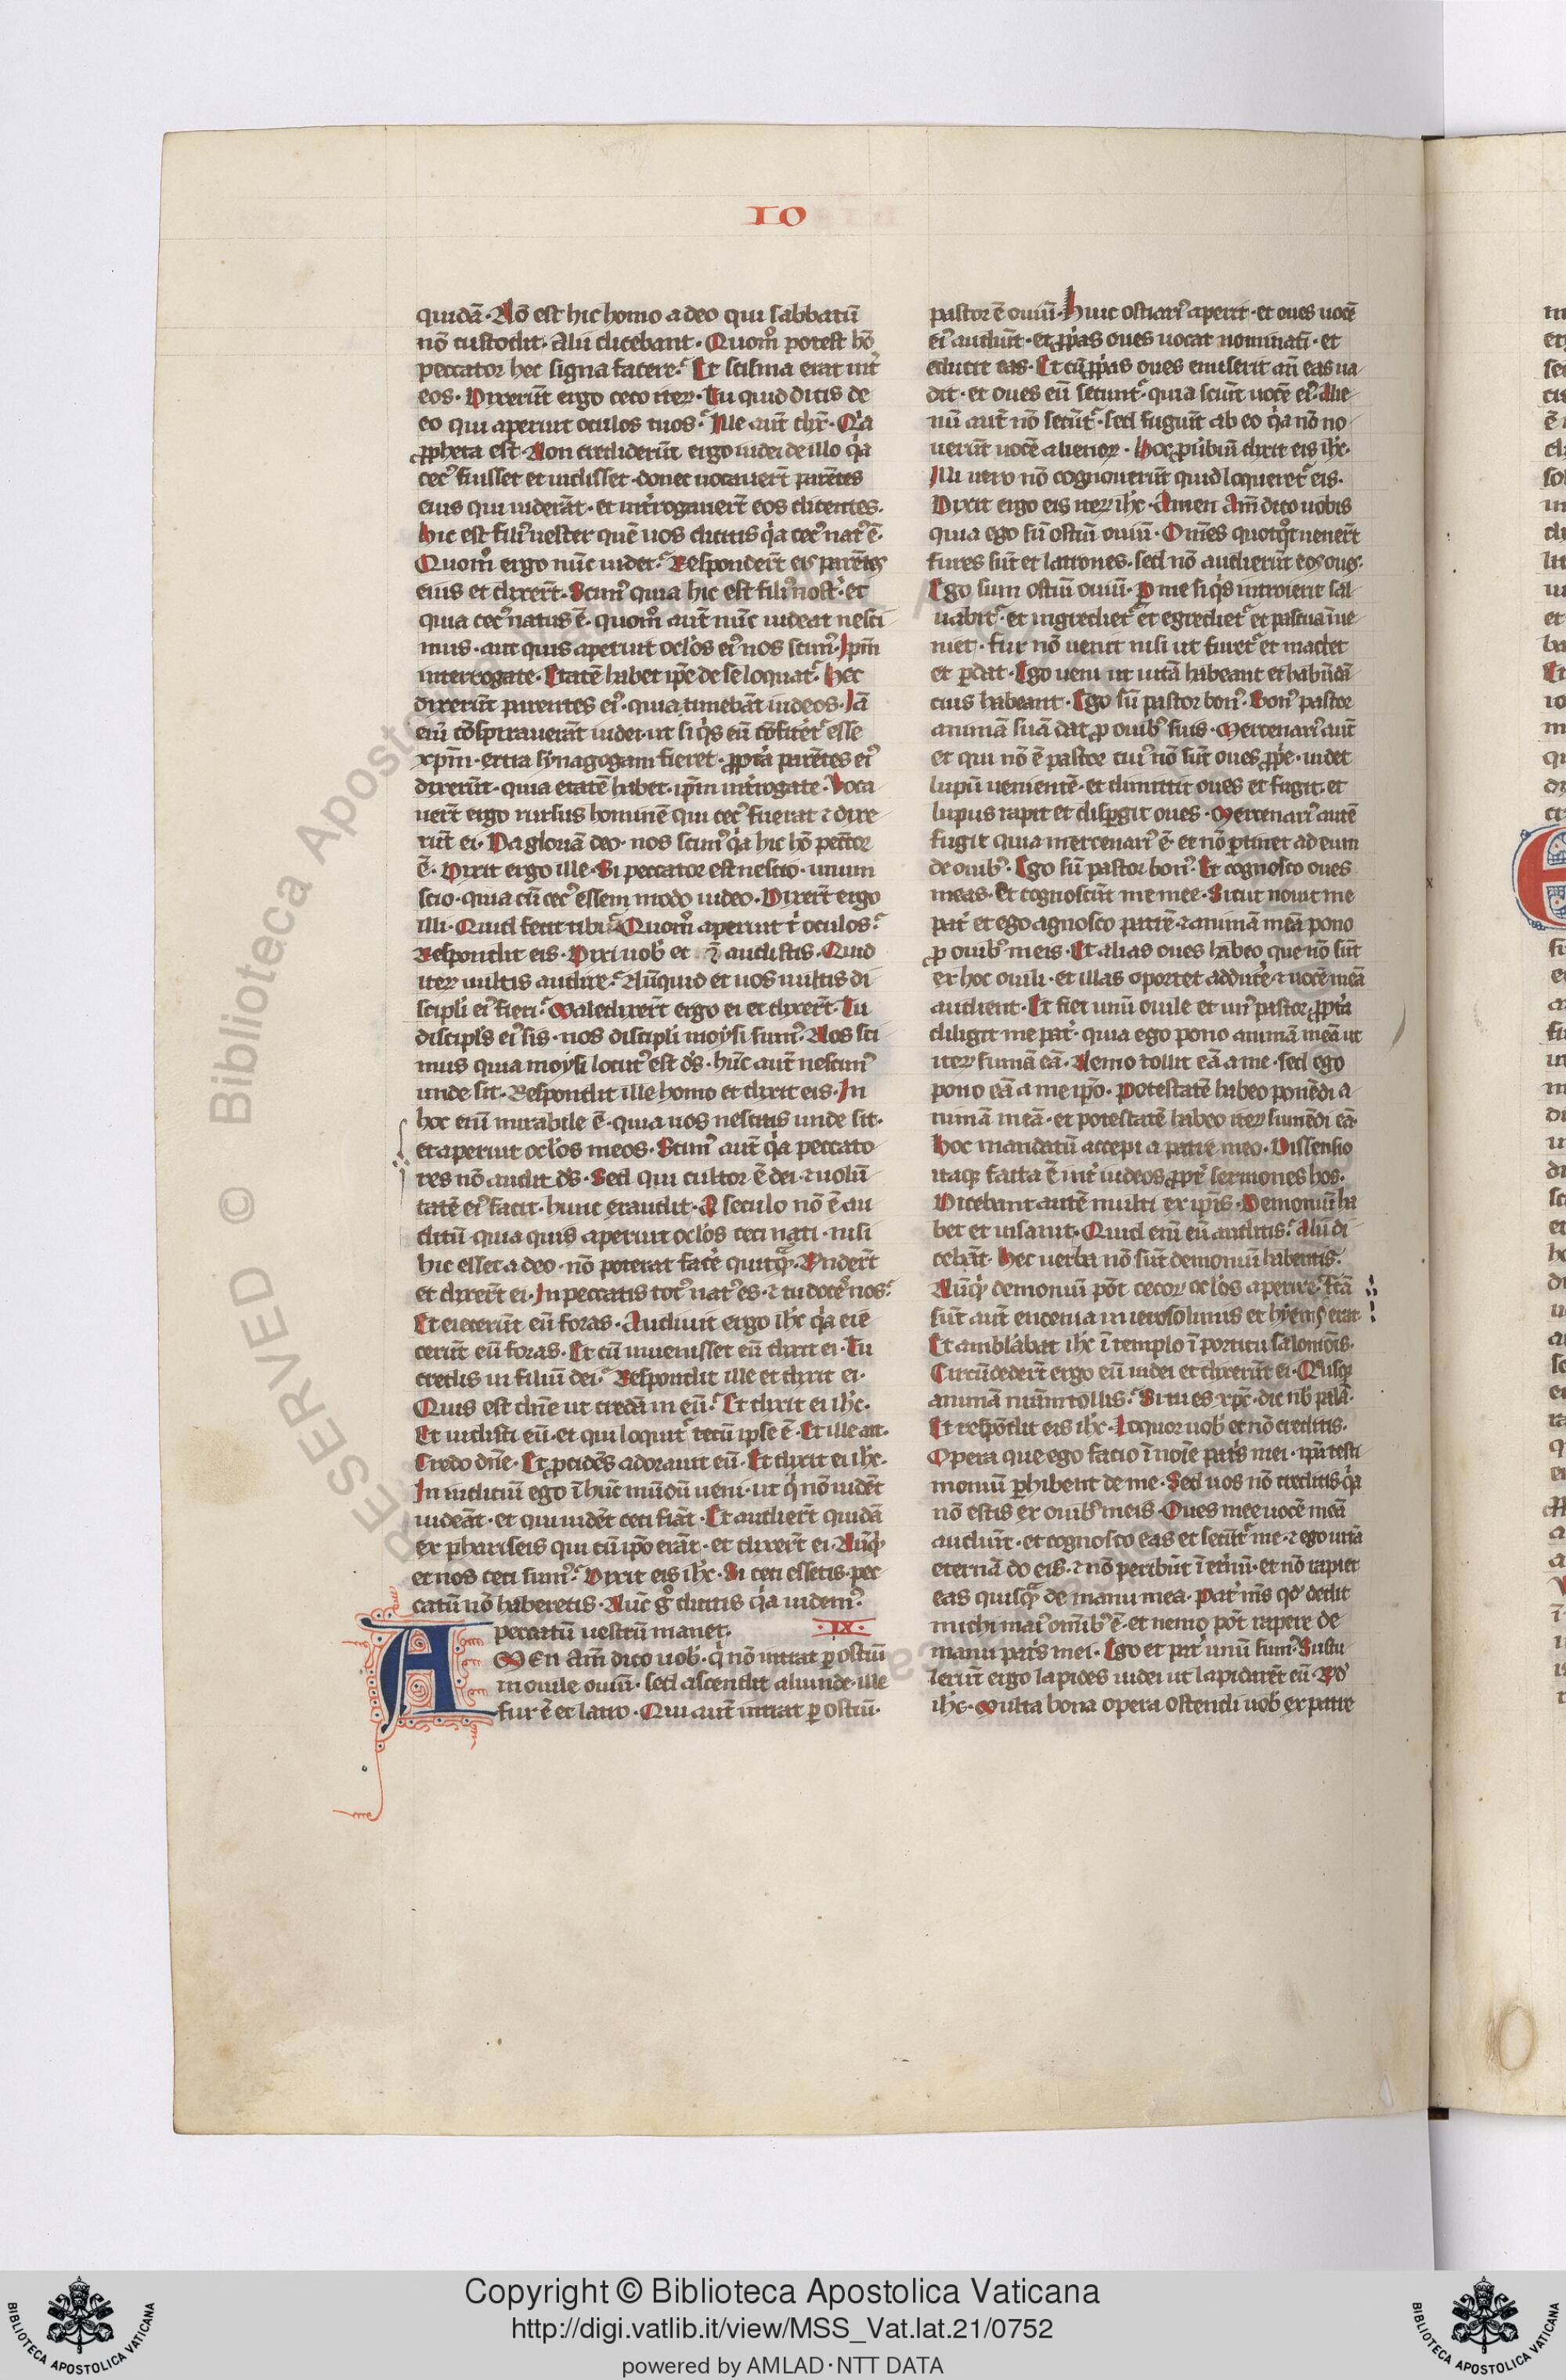 IO
quidã· Nõ est hic homo a deo qui sabbatũ
nõ custodit· Alii dicebant· Quom̊ potest hõ
peccator hec signa facere? Et scisma erat int̾
eos· Dixerũt ergo ceco iteꝝ· Tu quid dicis de
eo qui aperuit oculos tuos? Ille aut̃ dix̃· Q̾a
ꝓpheta est· Non crediderũt ergo iudei de illo q̾a
cecꝰ fuisset et uidisset· donec uocauer̃t parẽtes
eius qui uiderãt· et int̾rogauer̃t eos dicentes·
Hic est filiꝰ uester quẽ uos dicitis q̾a cecꝰ natꝰ ẽ·
Quom̊ ergo nũc uidet? Responder̃t eis parẽtes
eius et dixer̃t· Scimꝰ quia hic est filiꝰ nost̾· et
quia cecꝰ natus ẽ· quom̊ aut̃ nũc uideat nesci
mus· aut quis aperuit oc̃los eiꝰ nos scimꝰ· Ip̃m
interrogate· Etatẽ habet ip̃e de se loquat̾· Hec
dixerũt parentes eiꝰ· quia timebãt iudeos· Iã
eni᷑ cõspirauerãt iudei· ut si q̾s eũ cõfitet̾ esse
xp̃m· extra synagogam fieret· ꝓpt̾a parẽtes eiꝰ
dixerũt· quia etatẽ habet· ip̃m int̾rogate· Voca
uer̃t ergo rursus hominẽ qui cecꝰ fuerat ⁊ dixe
rũt ei· Da gloriã deo· nos scimꝰ q̾a hic hõ pecc̃tor
ẽ· Dixit ergo ille· Si peccator est nescio· unum
scio· quia cũ cecꝰ essem modo uideo· Dixer̃t ergo
illi· Quid fecit tibi? Quom̊ aperuit t̾ oculos?
Respondit eis· Dixi uob̾ et audistis· Quid
iteꝝ uultis audire? Nũquid et uos uultis di
scipli eiꝰ fieri? Maledixer̃t ergo ei et dixer̃t· Tu
discipl̾s eiꝰ sis· nos discipli moysi sumꝰ· Nos sci
mus quia moysi locutꝰ est d̃s· hũc aut̃ nescimꝰ
unde sit· Respondit ille homo et dixit eis· In
hoc eni᷑ mirabile ẽ· quia uos nescitis unde sit·
et aperuit oc̃los meos· Scimꝰ aut̃ q̾a peccato
res nõ audit d̃s· Sed qui cultor ẽ dei· ⁊ uolũ
tatẽ eiꝰ facit· hunc exaudit· A seculo nõ ẽ au
ditũ quia quis aperuit oc̃los ceci nati· nisi
hic esset a deo· nõ poterat fac̾e quicq̃· Rñder̃t
et dixer̃t ei· In peccatis totꝰ natꝰ es· ⁊ tu doces nos?
Et eiecerũt eũ foras· Audiuit ergo ih̃c q̾a eie
cerũt eũ foras· Et cũ inuenisset eũ dixit ei· Tu
credis in filiũ dei? Respondit ille et dixit ei·
Quis est dñe ut credã in eũ? Et dixit ei ih̃c·
Et uidisti eũ· et qui loquit̾ tecũ ipse ẽ· Et ille ait·
Credo dñe· Et ꝓcidẽs adorauit eũ· Et dixit ei ih̃c·
In iudiciũ ego ĩ hũc mũdũ ueni· ut q̾ nõ uidẽt
uideãt· et qui uidẽt ceci fiãt· Et audier̃t quidã
ex phariseis qui cũ ip̃o erãt· et dixer̃t ei· Nũq̾
et nos ceci sumꝰ? Dixit eis ih̃c· Si ceci essetis· pec
catũ nõ haberetis· Nũc g̊ dicitis q̾a uidemꝰ·
peccatũ uestrũ manet· ·IX·
AMEN Am̃ dico uob̾· q̾ nõ intrat ꝑ ostiũ
in ouile ouiũ· sed ascendit aliunde· ille
fur ẽ et latro· Qui aut̃ intrat ꝑ ostiũ·
pastor ẽ ouiũ· Huic ostiariꝰ aperit· et oues uocẽ
eiꝰ audiũt· et ꝓp̾as oues uocat nominati᷑· et
educit eas· Et cũ ꝓp̾as oues emiserit añ eas ua
dit· et oues eũ secunt̾· quia sciũt uocẽ eiꝰ· Alie
nũ aut̃ nõ secũt̾· sed fugiũt ab eo q̾a nõ no
uerũt uocẽ alienoꝝ· Hoc ꝓũbiũ dixit eis ih̃c·
Illi uero nõ cognouerũt quid loqueret̾ eis·
Dixit ergo eis iteꝝ ih̃c· Amen Am̃ dico uobis
quia ego sũ ostiũ ouiũ· Om̃es quotq̊t uener̃t
fures sũt et latrones· sed nõ audierũt eos oues·
Ego sum ostiũ ouiũ· Ꝑ me si q̾s introierit sal
uabit̾· et ingrediet̾ et egrediet̾ et pascua inue
niet· Fur nõ uenit nisi ut furet̾ et mactet
et ꝑdat· Ego ueni ut uitã habeant et habũdã
cius habeant· Ego sũ pastor bonꝰ· Bonꝰ pastor
animã suã dat ꝓ ouibꝰ suis· Mercenariꝰ aut̃
et qui nõ ẽ pastor cuiꝰ nõ sũt oues ꝓp̾e· uidet
lupũ uenientẽ· et dimittit oues et fugit· et
lupus rapit et disꝑgit oues· Mercenariꝰ autẽ
fugit quia mercenariꝰ ẽ· et nõ ꝑtinet ad eum
de ouibꝰ· Ego sũ pastor bonꝰ· Et cognosco oues
meas· Et cognoscũt me mee· Sicut nouit me
pat̾ et ego agnosco patrẽ· ⁊ animã meã pono
ꝓ ouibꝰ meis· Et alias oues habeo que nõ sũt
ex hoc ouili· et illas oportet adduc̾e· ⁊ uocẽ meã
audient· Et fiet unũ ouile et unꝰ pastor· ꝓpt̾a
diligit me pat̾· quia ego pono animã meã ut
iteꝝ sumã eã· Nemo tollit eã a me· sed ego
pono eã a me ip̃o· Potestatẽ habeo ponẽdi a
nimã meã· et potestatẽ habeo iteꝝ sumẽdi eã·
Hoc mandatũ accepi a patre meo· Dissensio
itaqꝫ facta ẽ int̾ iudeos ꝓpt̾ sermones hos·
Dicebant autẽ multi ex ip̃is· Demoniũ ha
bet et insanit· Quid eni᷑ eũ auditis? Alii di
cebãt· Hec uerba nõ sũt demoniũ habentis·
Nũq̾ demoniũ põt cecoꝝ oc̃los aperire? Fc̃a
sũt aut̃ encenia in ierosolimis et hyems erat·
Et amblabat ih̃c ĩ templo ĩ porticu salomõis·
Circũdeder̃t ergo eũ iudei et dixerũt ei· Q̾usqꝫ
animã nr̃am tollis? Si tu es xp̃c· dic nb̾ palã·
Et respõdit eis ih̃c· Loquor uob̾ et nõ creditis·
Opera que ego facio ĩ noĩe pat̾s mei· ip̃a testi
moniũ ꝑhibent de me· Sed uos nõ creditis· q̾a
nõ estis ex ouibꝰ meis· Oues mee uocẽ meã
audiũt· et cognosco eas et secũt̾ me· ⁊ ego uitã
eternã do eis· ⁊ nõ peribũt ĩ et̾nũ· et nõ rapiet
eas quisq̃ de manu mea· Pat̾ m̃s qd̾ dedit
michi maiꝰ om̃ibꝰ ẽ· et nemo põt rapere de
manu pat̾s mei· Ego et pat̾ unũ sumꝰ· Sustu
lerũt ergo lapides iudei ut lapidarẽt eũ· Rñd̾
ih̃c· Multa bona opera ostendi uob̾ ex patre
RESERVED © Biblioteca Apostolica Vaticana
Copyright © Biblioteca Apostolica Vaticana
http://digi.vatlib.it/view/MSS_Vat.lat.21/0752
powered by AMLAD·NTT DATA
BIBLIOTECA APOSTOLICA VATICANA
BIBLIOTECA APOSTOLICA VATICANA